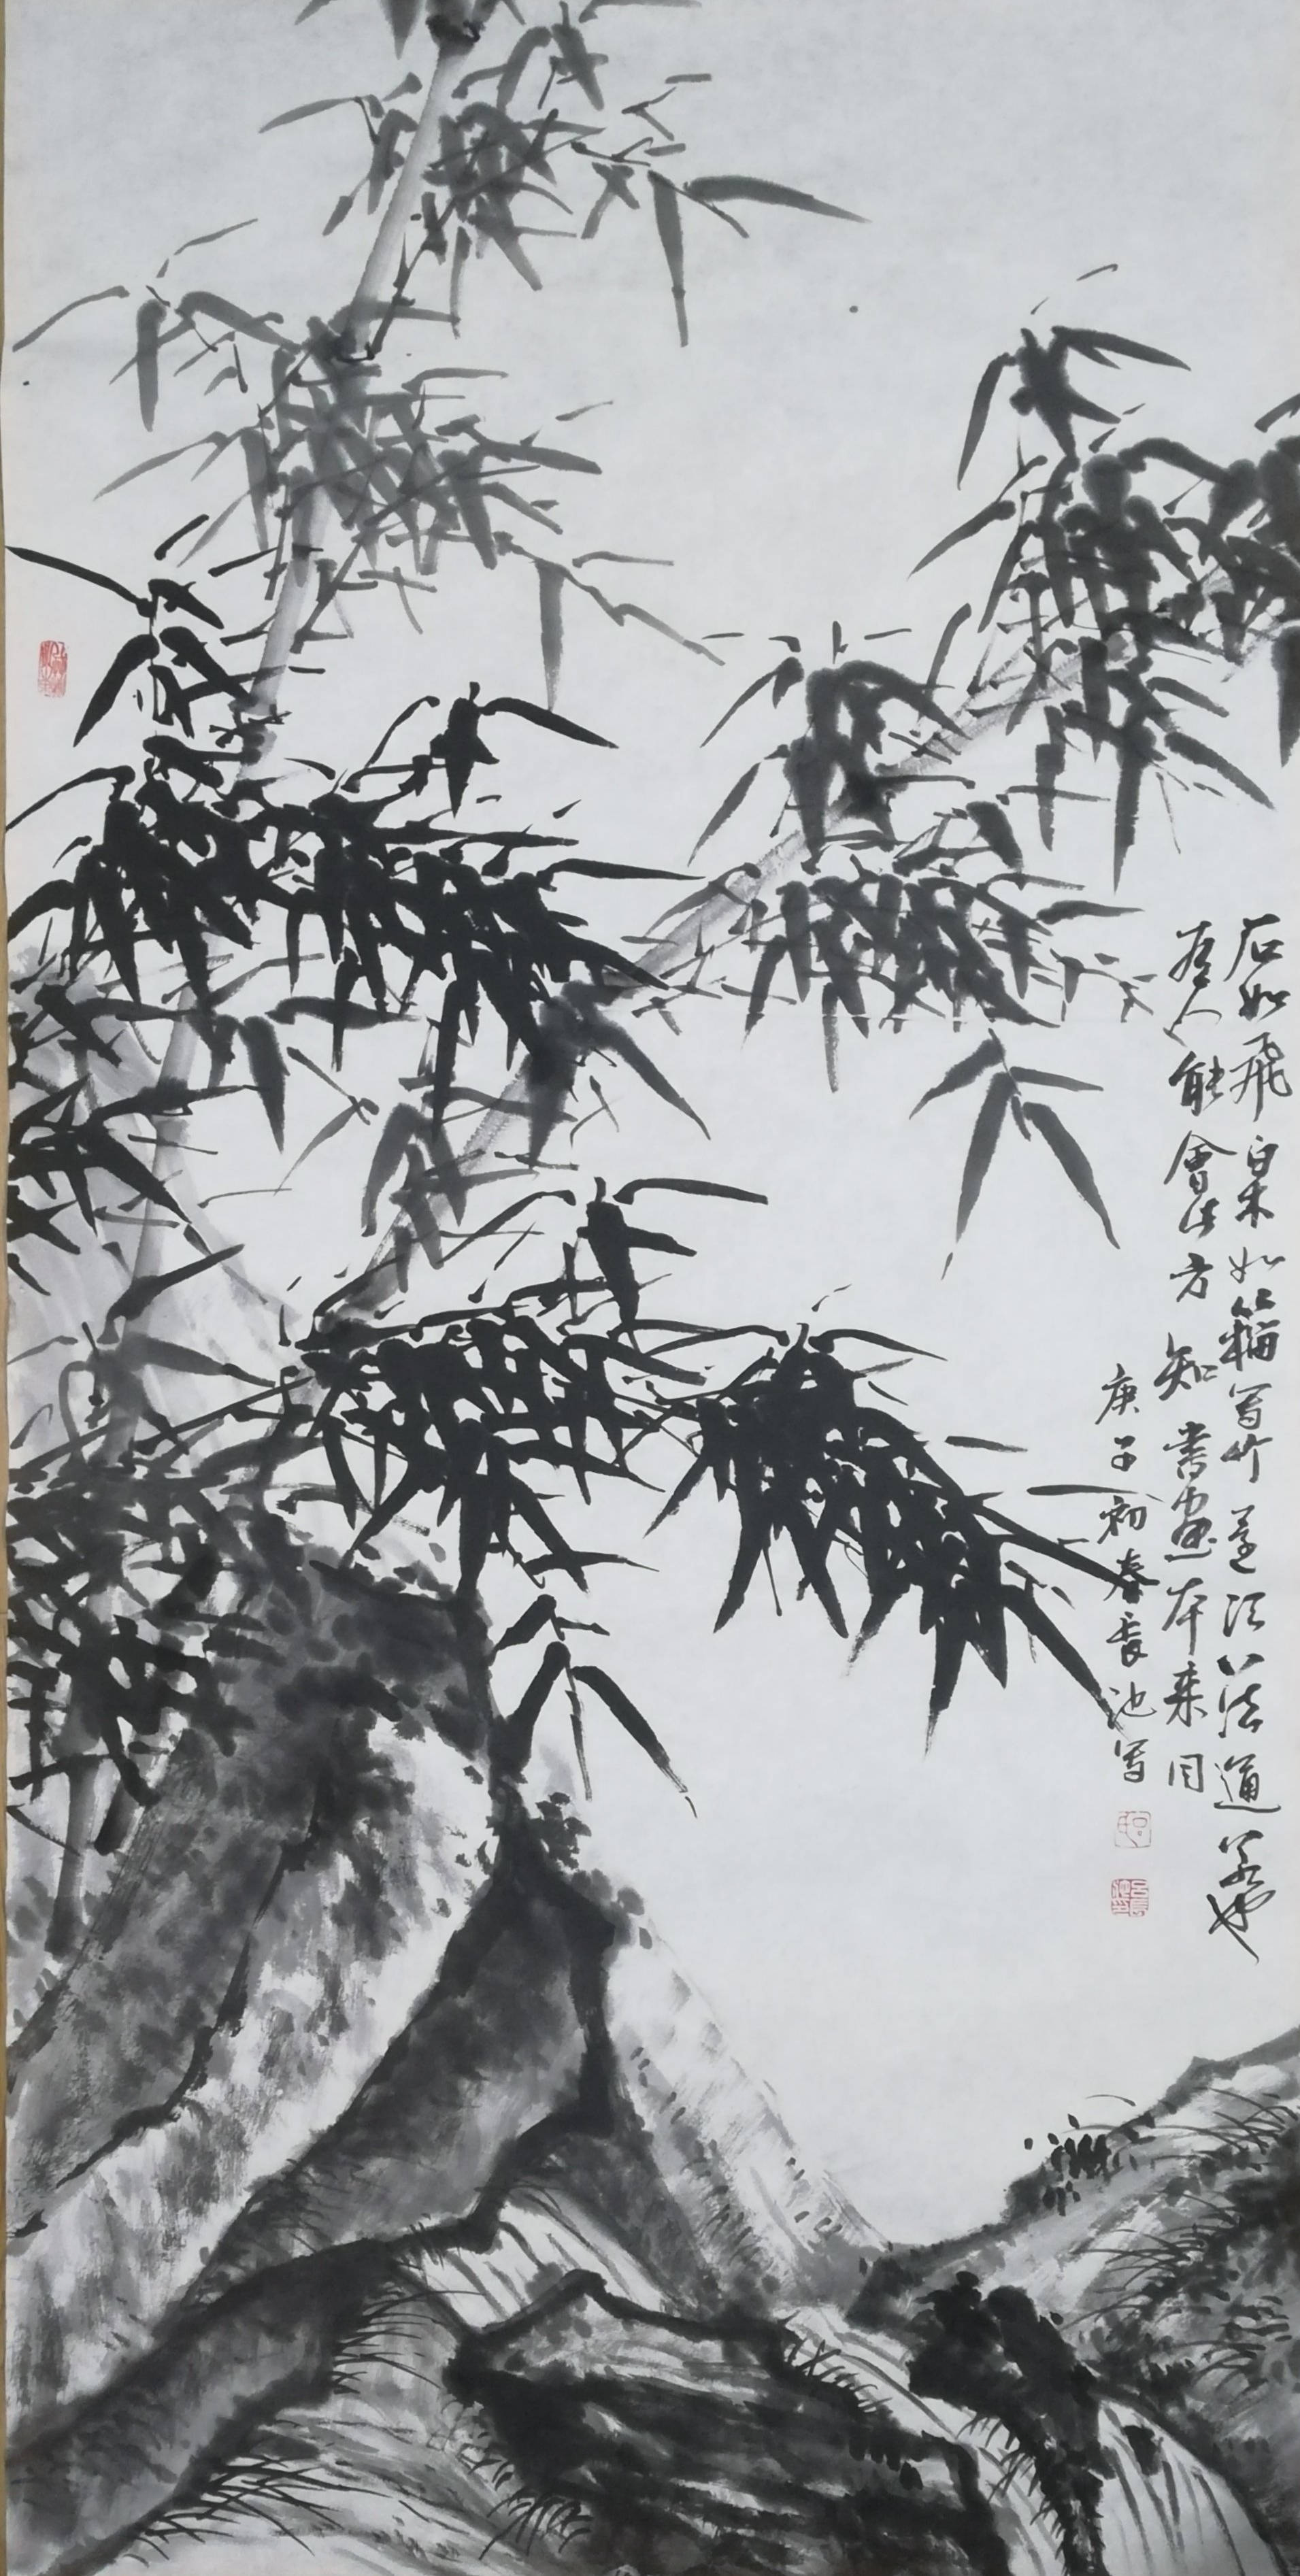 石如飛白木如籀写竹還須八法通若也
有人能會此方知書畫本来同
庚子初春長池写